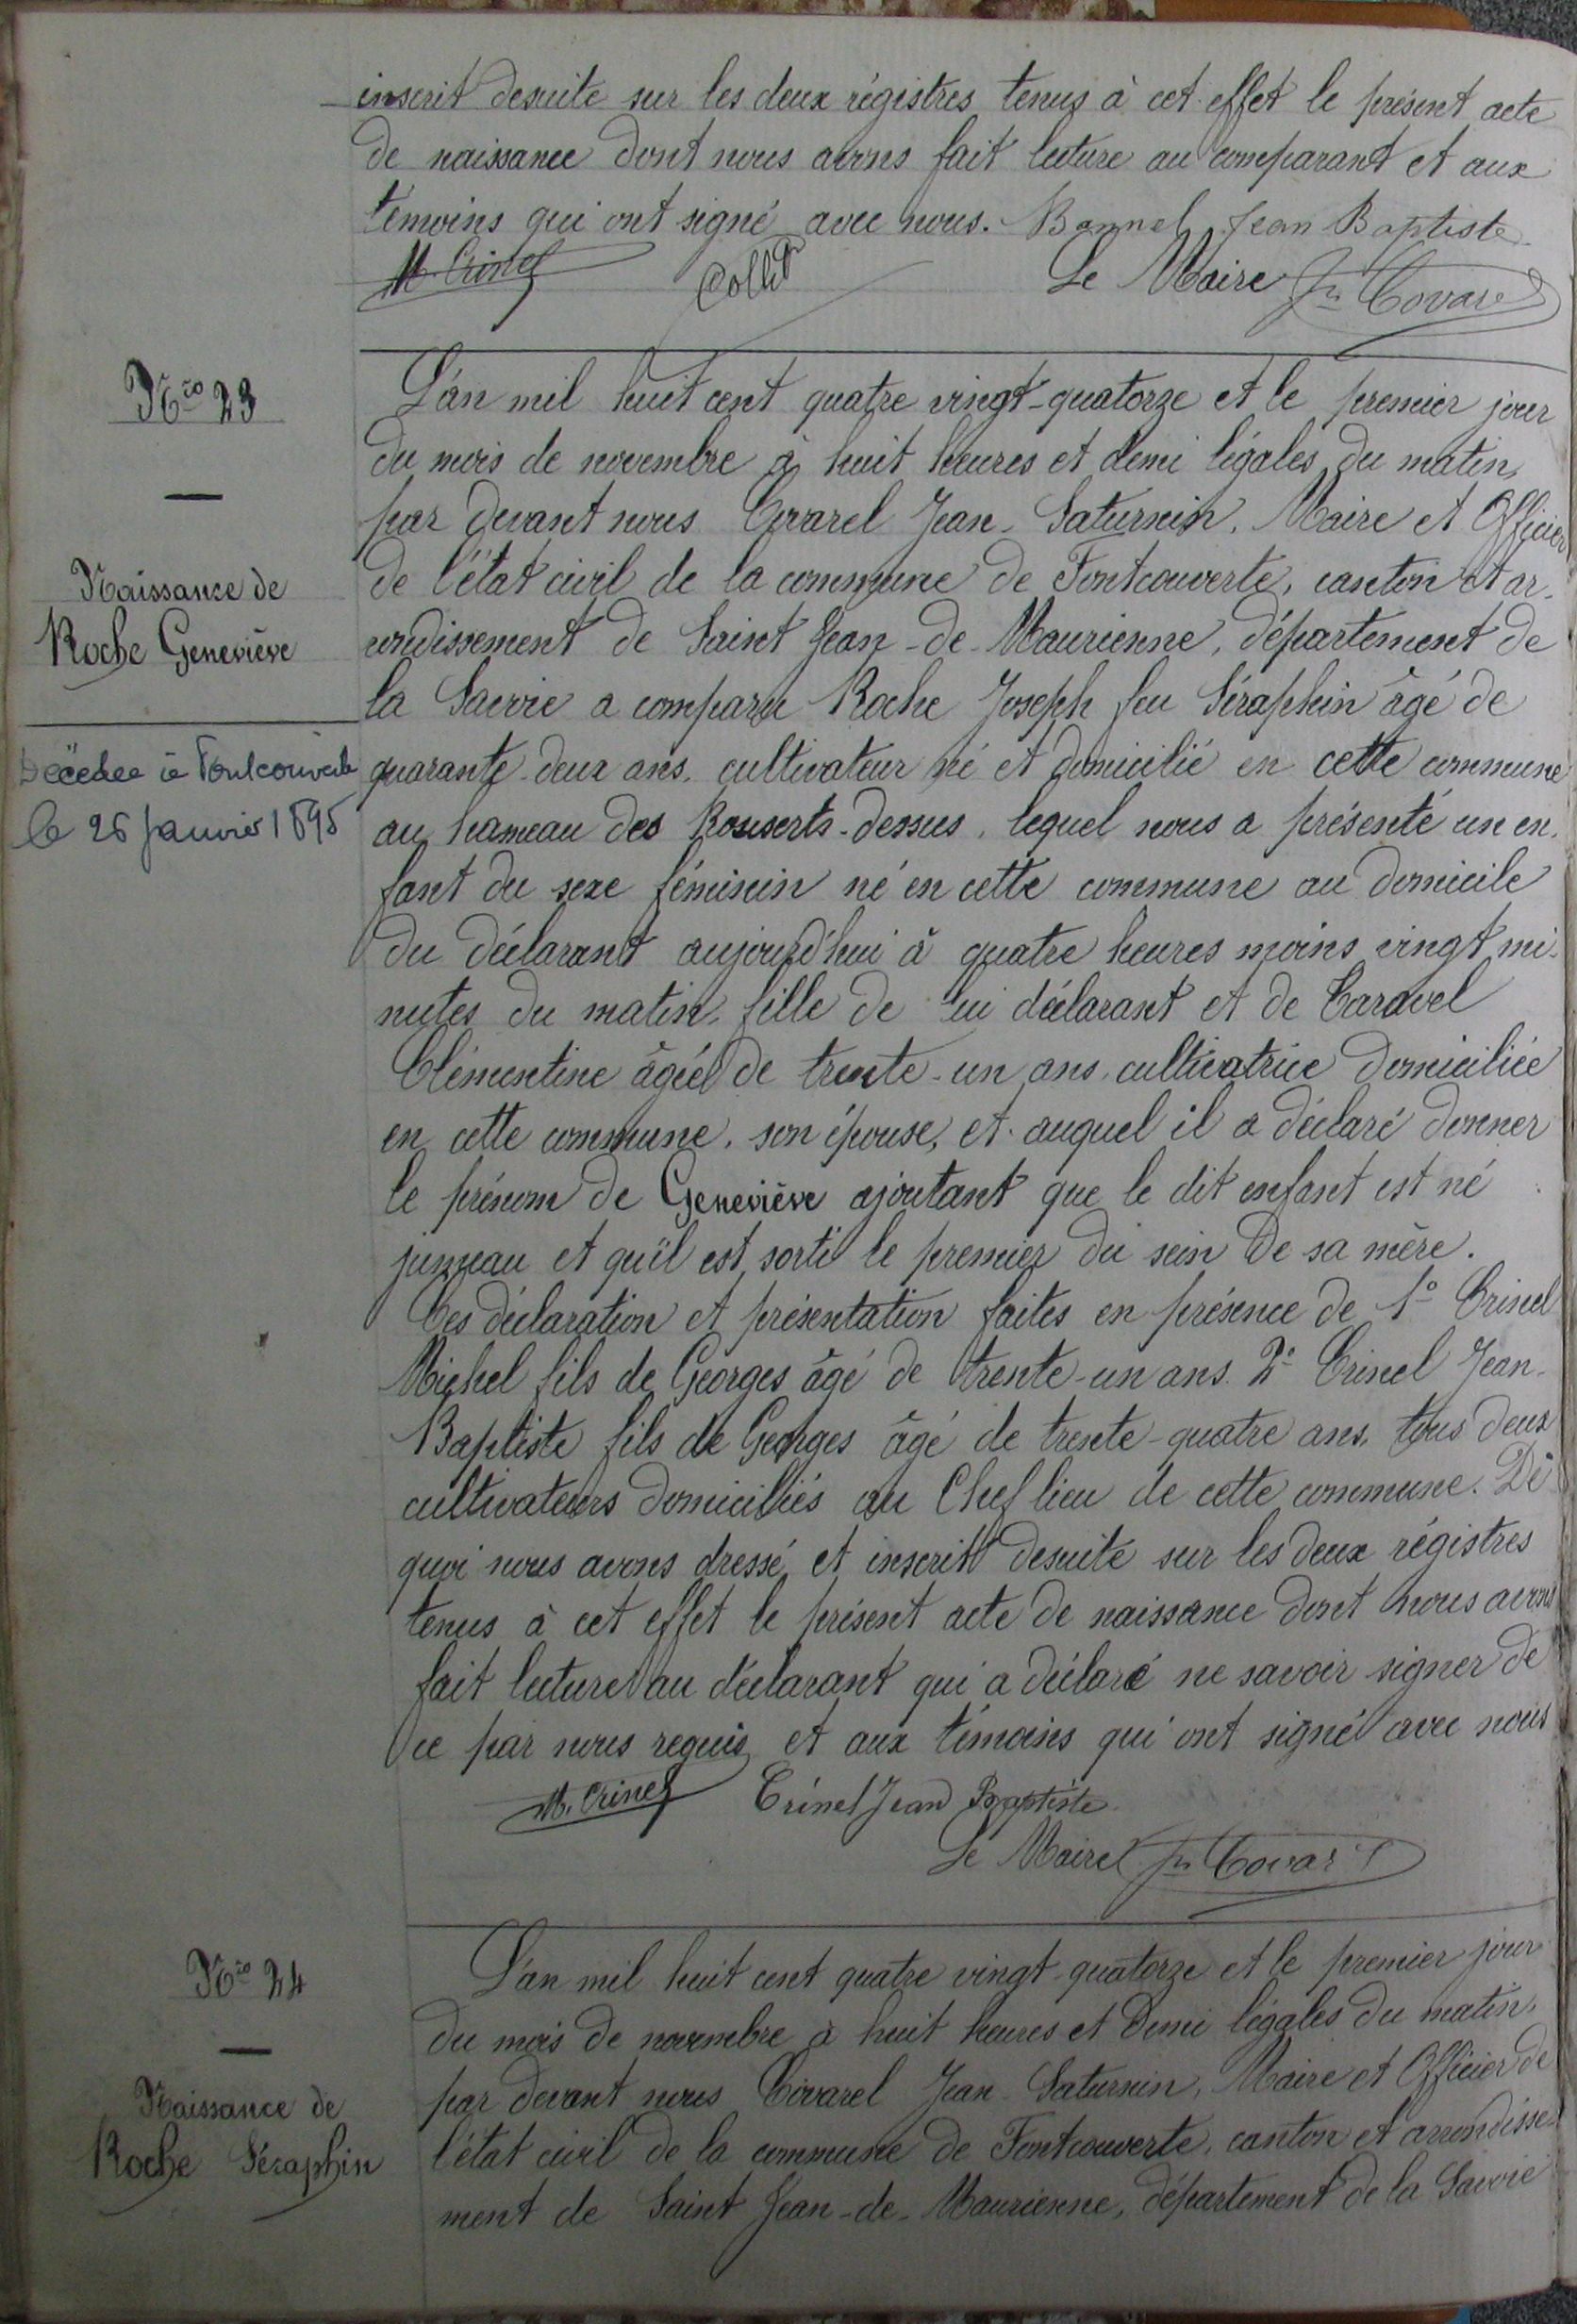 inscrit desuite sur les deux régistres tenus à cet effet le présent acte
de naissance dont nous avons fait lecture au comparant et aux
témoins qui ont signé avec nous. Bonnel Jean Baptiste
M. Crinel Collet Le Maire Jn Covarel
Nro 23
L'an mil huit cent quatre vingt-quatorze et le premier jour
du mois de novembre à huit heures et demi légales du matin,
par devant nous Covarel Jean-Saturnin, Maire et Officier
Naissance de
Roche Geneviève
de l'état civil de la commune de Fontcouverte, canton et ar-
rondissement de Saint Jean-de-Maurienne, département de
la Savoie a comparu Roche Joseph feu Séraphin âgé de
Décédée à Fontcouverte
le 26 janvier 1895
quarante-deux ans, cultivateur né et domicilié en cette commune
au hameau des Rousserts-dessus, lequel nous a présenté un en-
fant du sexe féminin né en cette commune au domicile
du déclarant aujourd'hui à quatre heures moins vingt mi-
nutes du matin, fille de lui déclarant et de Caravel
Clémentine âgée de trente-un ans, cultivatrice domiciliée
en cette commune, son épouse, et auquel il a déclaré donner
le prénom de Geneviève ajoutant que le dit enfant est né
jumeau et qu'il est sorti le premier du sein de sa mère.
Ces déclaration et présentation faites en présence de 1° Crinel
Michel fils de Georges âgé de trente-un ans. 2° Crinel Jean-
Baptiste fils de Georges âgé de trente-quatre ans, tous deux
cultivateurs domiciliés au Chef lieu de cette commune. De
quoi nous avons dressé et inscrit desuite sur les deux régistres
tenus à cet effet le présent acte de naissance dont nous avons
fait lecture au déclarant qui a déclaré ne savoir signer de
ce par nous requis et aux témoins qui ont signé avec nous
M. Crinel Crinel Jean Baptiste
Le Maire Jn Covarel
Nro 24
L'an mil huit cent quatre vingt-quatorze et le premier jour
du mois de novembre à huit heures et demi légales du matin,
par devant nous Covarel Jean-Saturnin, Maire et Officier de
Naissance de
Roche Séraphin
l'état civil de la commune de Fontcouverte, canton et arrondisse-
ment de Saint Jean-de-Maurienne, département de la Savoie